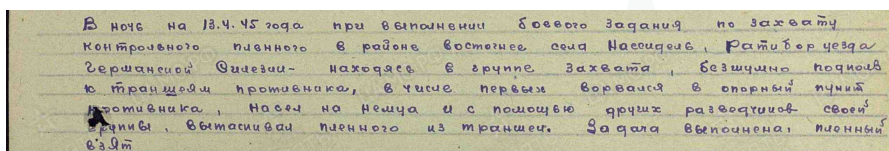 В ночь на 13.4.45 года при выполнении боевого задания по захвату
контрольного пленного в районе восточнее села Нассидель, Ратибор уезда
Германской Силезии- находясь в группе захвата, безшумно подполз
к траншеям противника, в числе первых ворвался в опорный пункт
противника, насел на немца и с помощью других разведчиков своей
группы, вытаскивал пленного из траншеи. Задача выполнена, пленный
взят